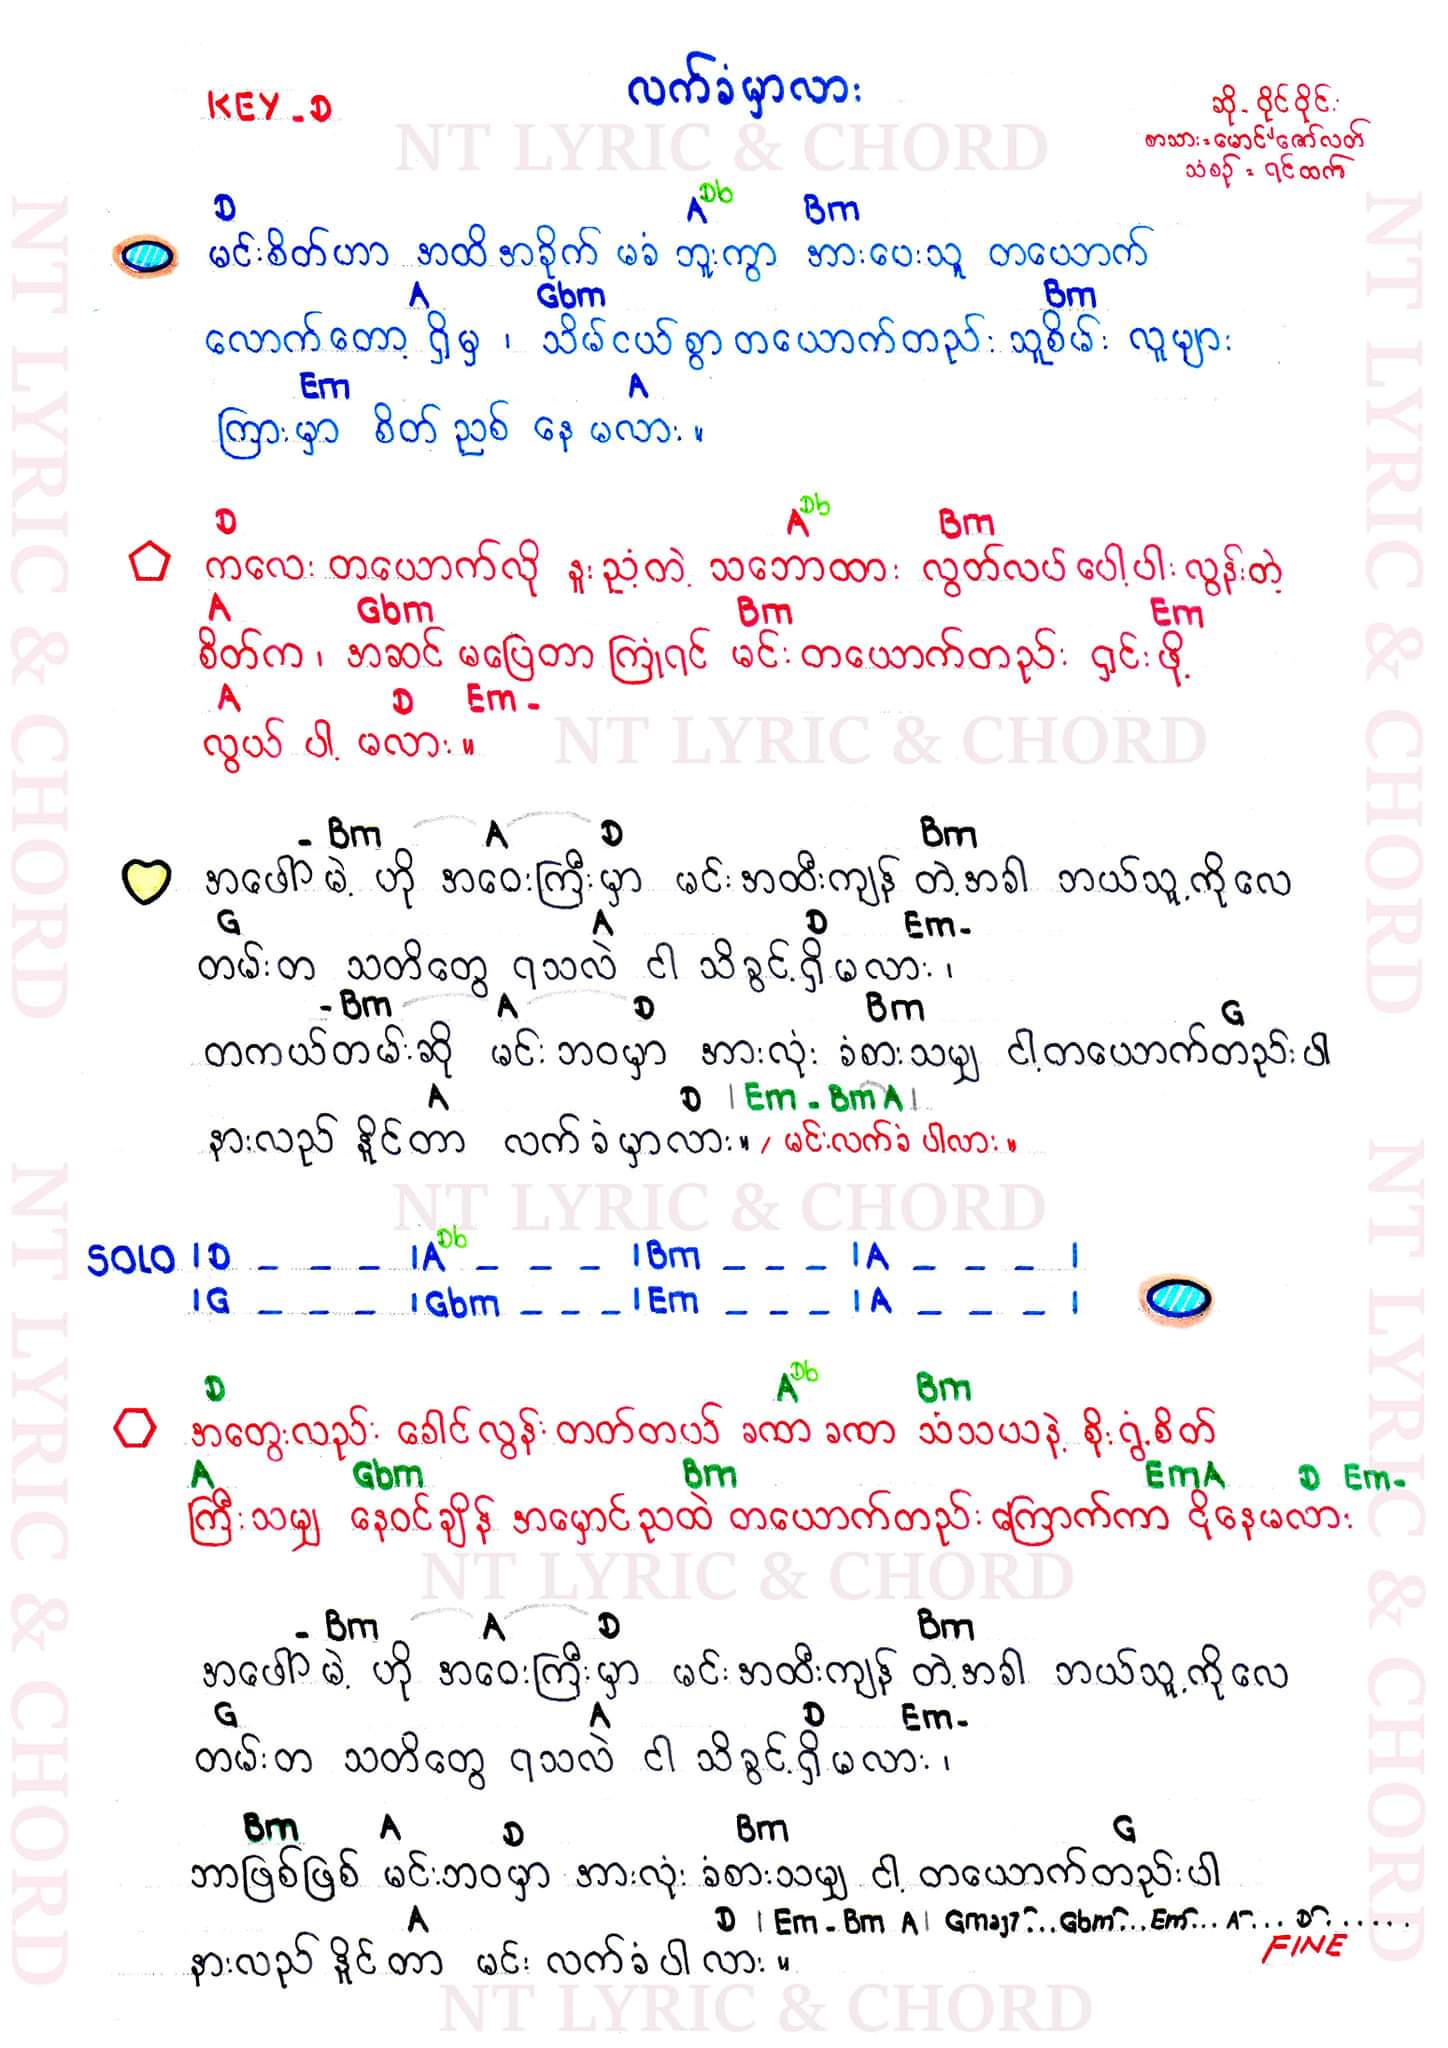 လက်ခံမှာလား
KEY - D
ဆို - ဝိုင်ဝိုင်း
စာသား = မောင်မောင်ဇော်လတ်
သံစဉ် = ရင်ထက်
NT LYRIC & CHORD
D A Db Bm
မင်းစိတ်ဟာ အထိအခိုက် မခံ ဘူးကွာ အားပေးသူ တယောက်
A Gbm Bm
လောက်တော့ ရှိမှ ၊ သိမ်ငယ်စွာ တယောက်တည်း သူစိမ်း လူများ
Em A
ကြားမှာ စိတ်ညစ် နေ မလား ။
D A Db Bm
ကလေး တယောက်လို နူးညံ့တဲ့ သဘောထား လွတ်လပ် ပေါ့ပါး လွန်းတဲ့
A Gbm Bm Em
စိတ်က ၊ အဆင် မပြေတာ ကြုံရင် မင်း တယောက်တည်း ရှင်းဖို့
A D Em -
လွယ် ပါ့ မလား ။
NT LYRIC & CHORD
- Bm A D Bm
အဖေါ်မဲ့ ဟို အဝေးကြီးမှာ မင်းအထီးကျန် တဲ့အခါ ဘယ်သူ့ကိုလေ
G A D Em -
တမ်းတ သတိတွေ ရသလဲ ငါ သိခွင့်ရှိမလား ၊
- Bm A D Bm G
တကယ်တမ်းဆို မင်းဘဝမှာ အားလုံး ခံစားသမျှ ငါ့တယောက်တည်းပါ
A D | Em - Bm A |
နားလည် နိူင်တာ လက်ခံမှာလား ။ / မင်းလက်ခံ ပါလား ။
NT LYRIC & CHORD
SOLO | D _ _ _ | A Db _ _ _ | Bm _ _ _ | A _ _ _ |
| G _ _ _ | Gbm _ _ _ | Em _ _ _ | A _ _ _ |
D A Db Bm
အတွေးလည်း ခေါင်လွန်း တတ်တယ် ခဏ ခဏ သံသယနဲ့ စိုးရွံ့စိတ်
A Gbm Bm Em A D Em -
ကြီးသမျှ နေဝင်ချိန် အမှောင်ညထဲ တယောက်တည်း ကြောက်ကာ ငိုနေမလား
NT LYRIC & CHORD
- Bm A D Bm
အဖေါ်မဲ့ ဟို အဝေးကြီးမှာ မင်းအထီးကျန် တဲ့အခါ ဘယ်သူ့ကိုလေ
G A D Em -
တမ်းတ သတိတွေ ရသလဲ ငါ သိခွင့်ရှိမလား ၊
Bm A D Bm G
ဘာဖြစ်ဖြစ် မင်းဘဝမှာ အားလုံး ခံစားသမျှ ငါ့ တယောက်တည်းပါ
A D | Em - Bm A | Gmaj7... Gbm... Em... A... D......
FINE
နားလည် နိူင်တာ မင်း လက်ခံပါလား ။
NT LYRIC & CHORD
NT LYRIC & CHORD
NT LYRIC & CHORD
NT LYRIC & CHORD
NT LYRIC & CHORD